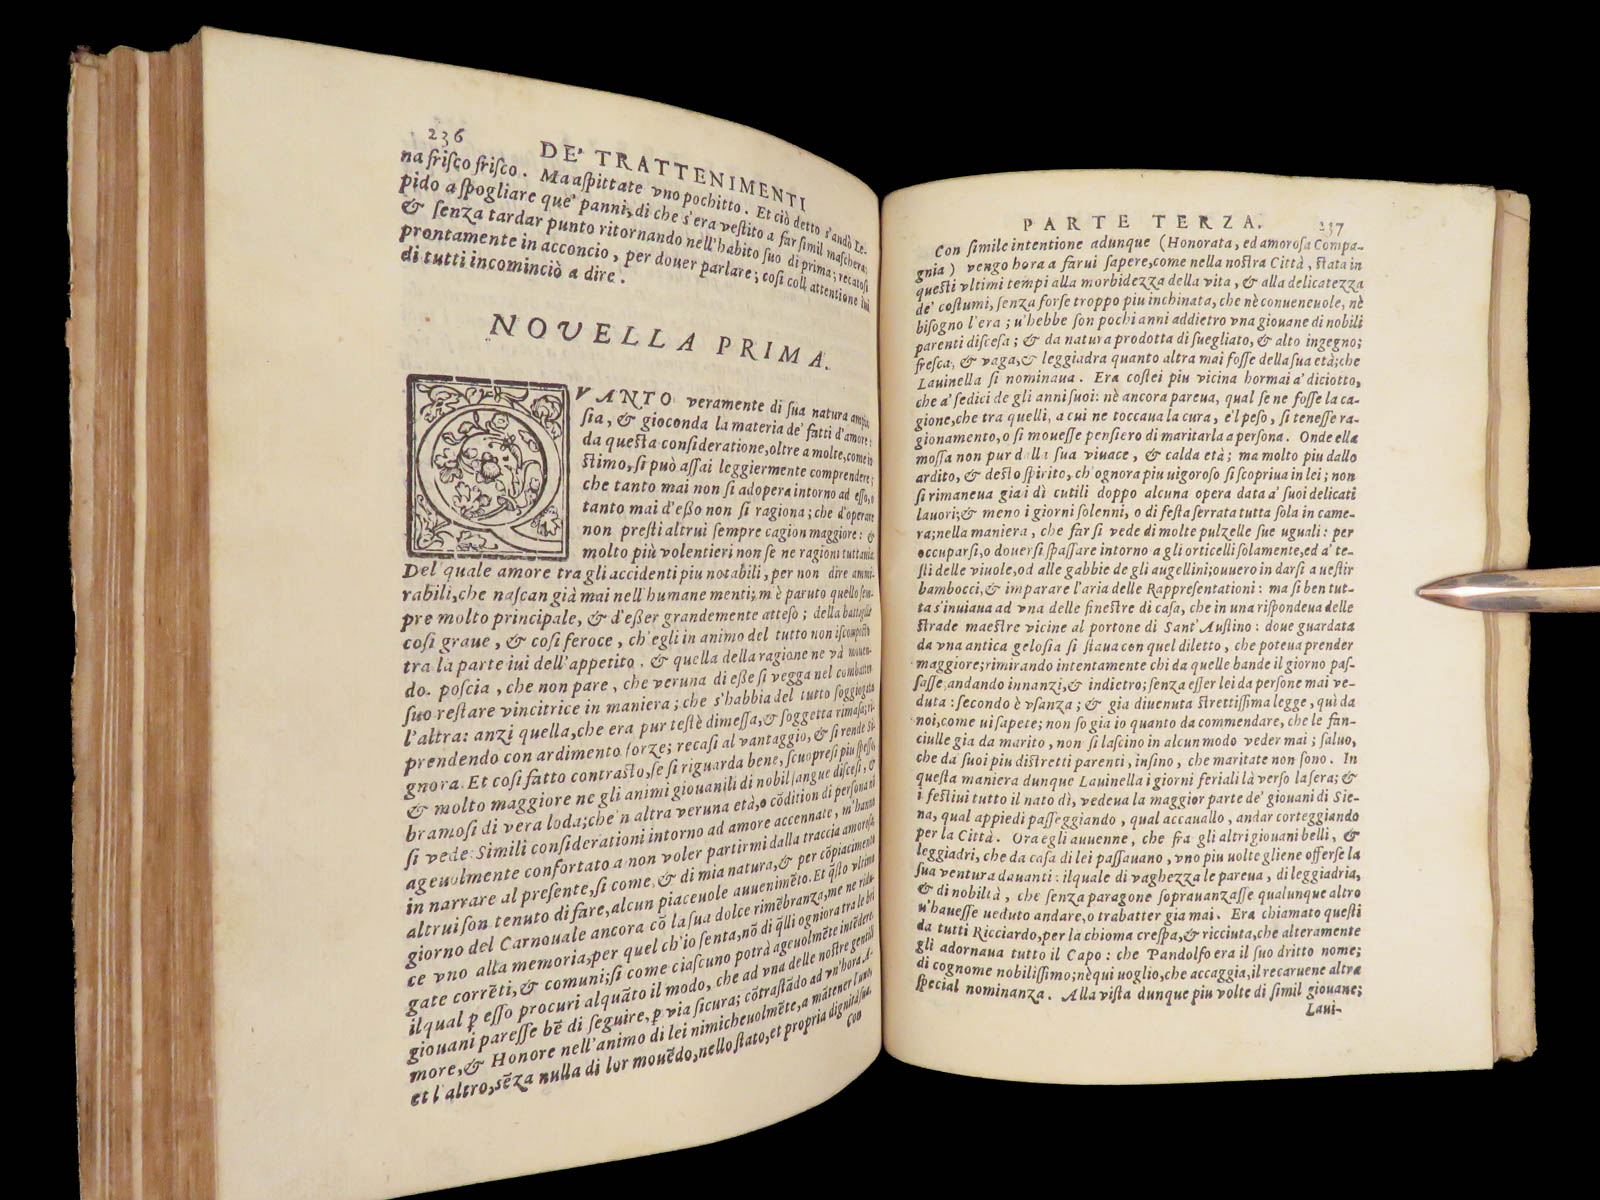 236
DE' TRATTENIMENTI
na friſco friſco. Ma aſpittate vno pochitto. Et ciò detto s'andò Le-
pido a ſpogliare que' panni, di che s'era veſtito a far ſimil maſchera;
& ſenza tardar punto ritornando nell'habito ſuo di prima; recatoſi
prontamente in acconcio, per douer parlare; coſi coll attentione iui
di tutti incominciò a dire.
NOVELLA PRIMA.
QVANTO veramente di ſua natura ampia,
ſia, & gioconda la materia de' fatti d'amore;
da queſta conſideratione, oltre a molte, come io
ſtimo, ſi può aſſai leggiermente comprendere;
che tanto mai non ſi adopera intorno ad eſſo, o
tanto mai d'eßo non ſi ragiona; che d'operare
non preſti altrui ſempre cagion maggiore: &
molto più volentieri non ſe ne ragioni tuttauia.
Del quale amore tra gli accidenti piu notabili, per non dire ammi-
rabili, che naſcan già mai nell'humane menti; m'è paruto quello ſem-
pre molto principale, & d'eßer grandemente atteſo; della battaglia
coſi graue, & coſi feroce, ch'egli in animo del tutto non iſcompoſto
tra la parte iui dell'appetito, & quella della ragione ne và mouen-
do. poſcia, che non pare, che veruna di eße ſi vegga nel combatter
ſuo reſtare vincitrice in maniera; che s'habbia del tutto ſoggiogata
l'altra: anzi quella, che era pur teſtè dimeſſa, & ſoggetta rimaſa; ri-
prendendo con ardimento forze; recaſi al vantaggio, & ſi rende Si-
gnora. Et coſi fatto contraſto, ſe ſi riguarda bene, ſcuopreſi piu ſpeſſo,
& molto maggiore ne gli animi giouanili di nobil ſangue diſceſi, &
bramoſi di vera loda; che'n altra veruna età, o cōdition di perſona nō
ſi vede. Simili conſiderationi intorno ad amore accennate, m'hanno
ageuolmente confortato a non voler partirmi dalla traccia amoroſa,
in narrare al preſente, ſi come, & di mia natura, & per cōpiacimento
altrui ſon tenuto di fare, alcun piaceuole auuenimēto. Et q̄ſto vltimo
giorno del Carnouale ancora cō la ſua dolce rimēbranza, me ne ridu-
ce vno alla memoria, per quel ch'io ſenta, nō di q̄lli ogniora tra le bri
gate corrēti, & comuni; ſi come ciaſcuno potrà ageuolmēte intēdere.
ilqual p̱ eſſo procuri alquāto il modo, che ad vna delle noſtre gentili
giouani pareſſe bē di ſeguire, p̱ via ſicura; cōtraſtādo ad vn'hora A-
more, & Honore nell'animo di lei nimicheuolmēte, a mātener l'uno,
et l'altro, sēza nulla di lor mouēdo, nello ſtato, et propria dignità ſua.
Con
PARTE TERZA.
237
Con ſimile intentione adunque (Honorata, ed amoroſa Compa-
gnia) vengo hora a farui ſapere, come nella noſtra Città, ſtata in
queſti vltimi tempi alla morbidezza della vita, & alla delicatezza
de' coſtumi, ſenza forſe troppo piu inchinata, che nè conueneuole, nè
biſogno l'era; u'hebbe ſon pochi anni addietro vna giouane di nobili
parenti diſceſa; & da natura prodotta di ſuegliato, & alto ingegno;
freſca, & vaga, & leggiadra quanto altra mai foſſe della ſua età; che
Lauinella ſi nominaua. Era coſtei piu vicina hormai a' diciotto,
che a' ſedici de gli anni ſuoi: nè ancora pareua, qual ſe ne foſſe la ca-
gione, che tra quelli, a cui ne toccaua la cura, e'l peſo, ſi teneſſe ra-
gionamento, o ſi moueſſe penſiero di maritarla a perſona. Onde ella
moſſa non pur dalla ſua viuace, & calda età; ma molto piu dallo
ardito, & deſto ſpirito, ch'ognora piu uigoroſo ſi ſcopriua in lei; non
ſi rimaneua gia i dì cutili doppo alcuna opera data a' ſuoi delicati
lauori; & meno i giorni ſolenni, o di feſta ſerrata tutta ſola in came-
ra; nella maniera, che far ſi vede di molte pulzelle ſue uguali: per
occuparſi, o douerſi ſpaſſare intorno a gli orticelli ſolamente, ed a' te-
ſti delle viuole, od alle gabbie de gli augellini; ouuero in darſi a ueſtir
bambocci, & imparare l'aria delle Rappreſentationi: ma ſi ben tut-
ta s'inuiaua ad vna delle fineſtre di caſa, che in una riſpondeua delle
ſtrade maeſtre vicine al portone di Sant' Auſtino: doue guardata
da vna antica geloſia ſi ſtaua con quel diletto, che poteua prender
maggiore; rimirando intentamente chi da quelle bande il giorno paſ-
ſaſſe andando innanzi, & indietro; ſenza eſſer lei da perſone mai ve-
duta: ſecondo è vſanza; & gia diuenuta ſtrettiſſima legge, quì da
noi, come ui ſapete; non ſo gia io quanto da commendare, che le fan-
ciulle gia da marito, non ſi laſcino in alcun modo veder mai; ſaluo,
che da ſuoi piu diſtretti parenti, inſino, che maritate non ſono. In
queſta maniera dunque Lauinella i giorni feriali là verſo la ſera; &
i feſtiui tutto il nato dì, vedeua la maggior parte de' giouani di Sie-
na, qual appiedi paſſeggiando, qual accauallo, andar corteggiando
per la Città. Ora egli auuenne, che fra gli altri giouani belli, &
leggiadri, che da caſa di lei paſſauano, vno piu uolte gliene offerſe la
ſua ventura dauanti: ilquale di vaghezza le pareua, di leggiadria,
& di nobiltà, che ſenza paragone ſoprauanzaſſe qualunque altro
u'haueſſe ueduto andare, o trabatter gia mai. Era chiamato queſti
da tutti Ricciardo, per la chioma creſpa, & ricciuta, che alteramente
gli adornaua tutto il Capo: che Pandolfo era il ſuo dritto nome;
di cognome nobiliſſimo; nè qui uoglio, che accaggia, il recaruene altra
ſpecial nominanza. Alla viſta dunque piu volte di ſimil giouane;
Laui-